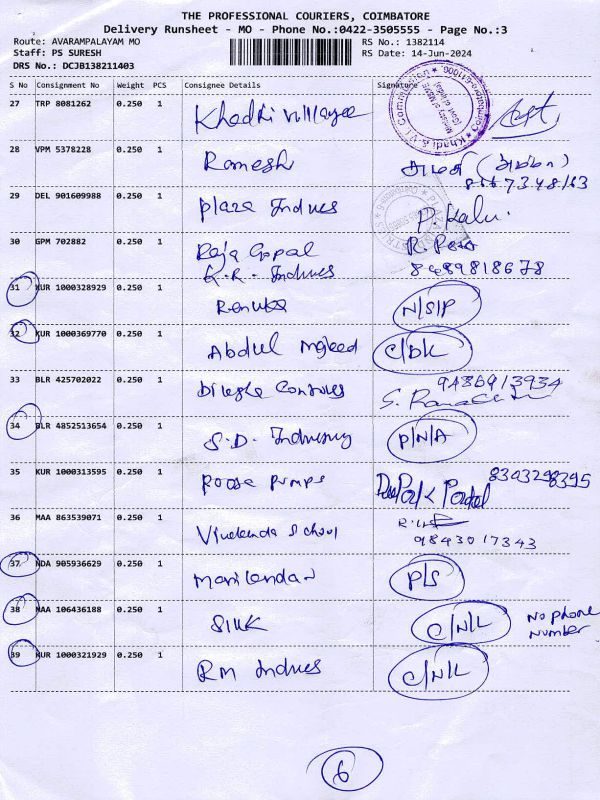 THE PROFESSIONAL COURIERS, COIMBATORE
Delivery Runsheet - MO - Phone No.:0422-3505555 - Page No.:3
Route: AVARAMPALAYAM MO RS No.: 1382114
Staff: PS SURESH RS Date: 14-Jun-2024
DRS No.: DCJB138211403
S No Consignment No Weight PCS Consignee Details Signature
27 TRP 8081262 0.250 1 Khadki
28 VPM 5378228 0.250 1 Ramesh
29 DEL 901609988 0.250 1 Plaza Indues P. Kalu.
30 GPM 702882 0.250 1 Raja Gopal
K.R. Indues 8489818678
31 KUR 1000328929 0.250 1 Renuka N/S/P
32 KUR 1000369770 0.250 1 Abdul Majeed C/DK
33 BLR 425702022 0.250 1 9486913934
34 BLR 4852513654 0.250 1 S.D. P/N/A
35 KUR 1000313595 0.250 1 Pumps Deepak Patel 8303298395
36 MAA 863539071 0.250 1 School 9843017343
37 NDA 905936629 0.250 1 P/S
38 MAA 106436188 0.250 1 SIUK C/N/L No phone number
39 KUR 1000321929 0.250 1 RM Indues C/N/L
6